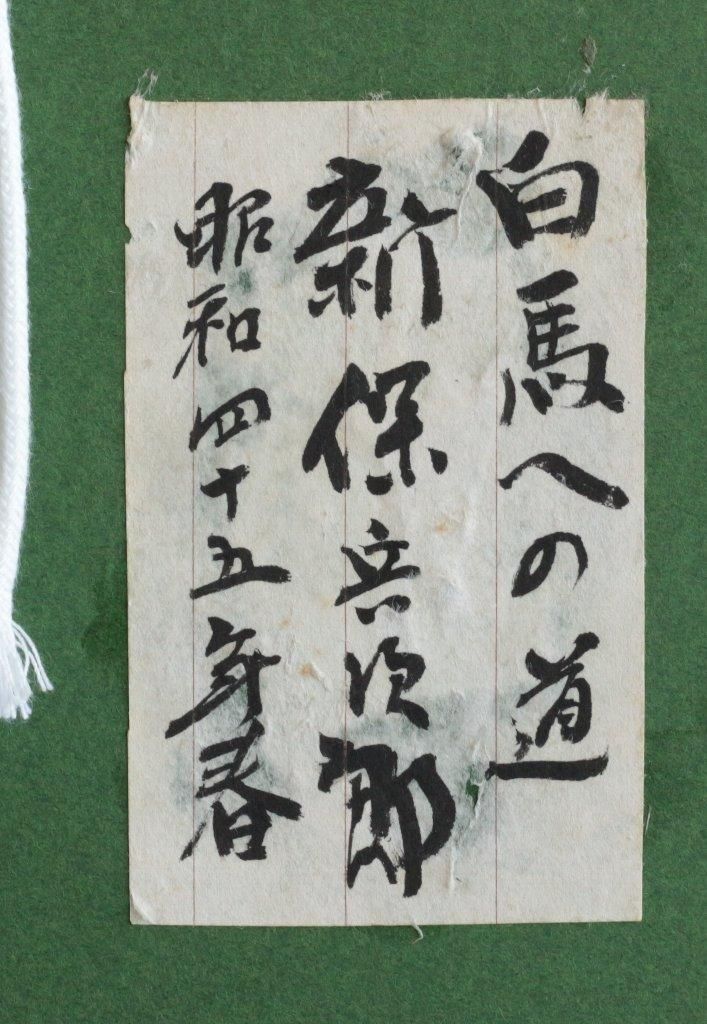 白馬への道
新保兵次郎
昭和四十五年春